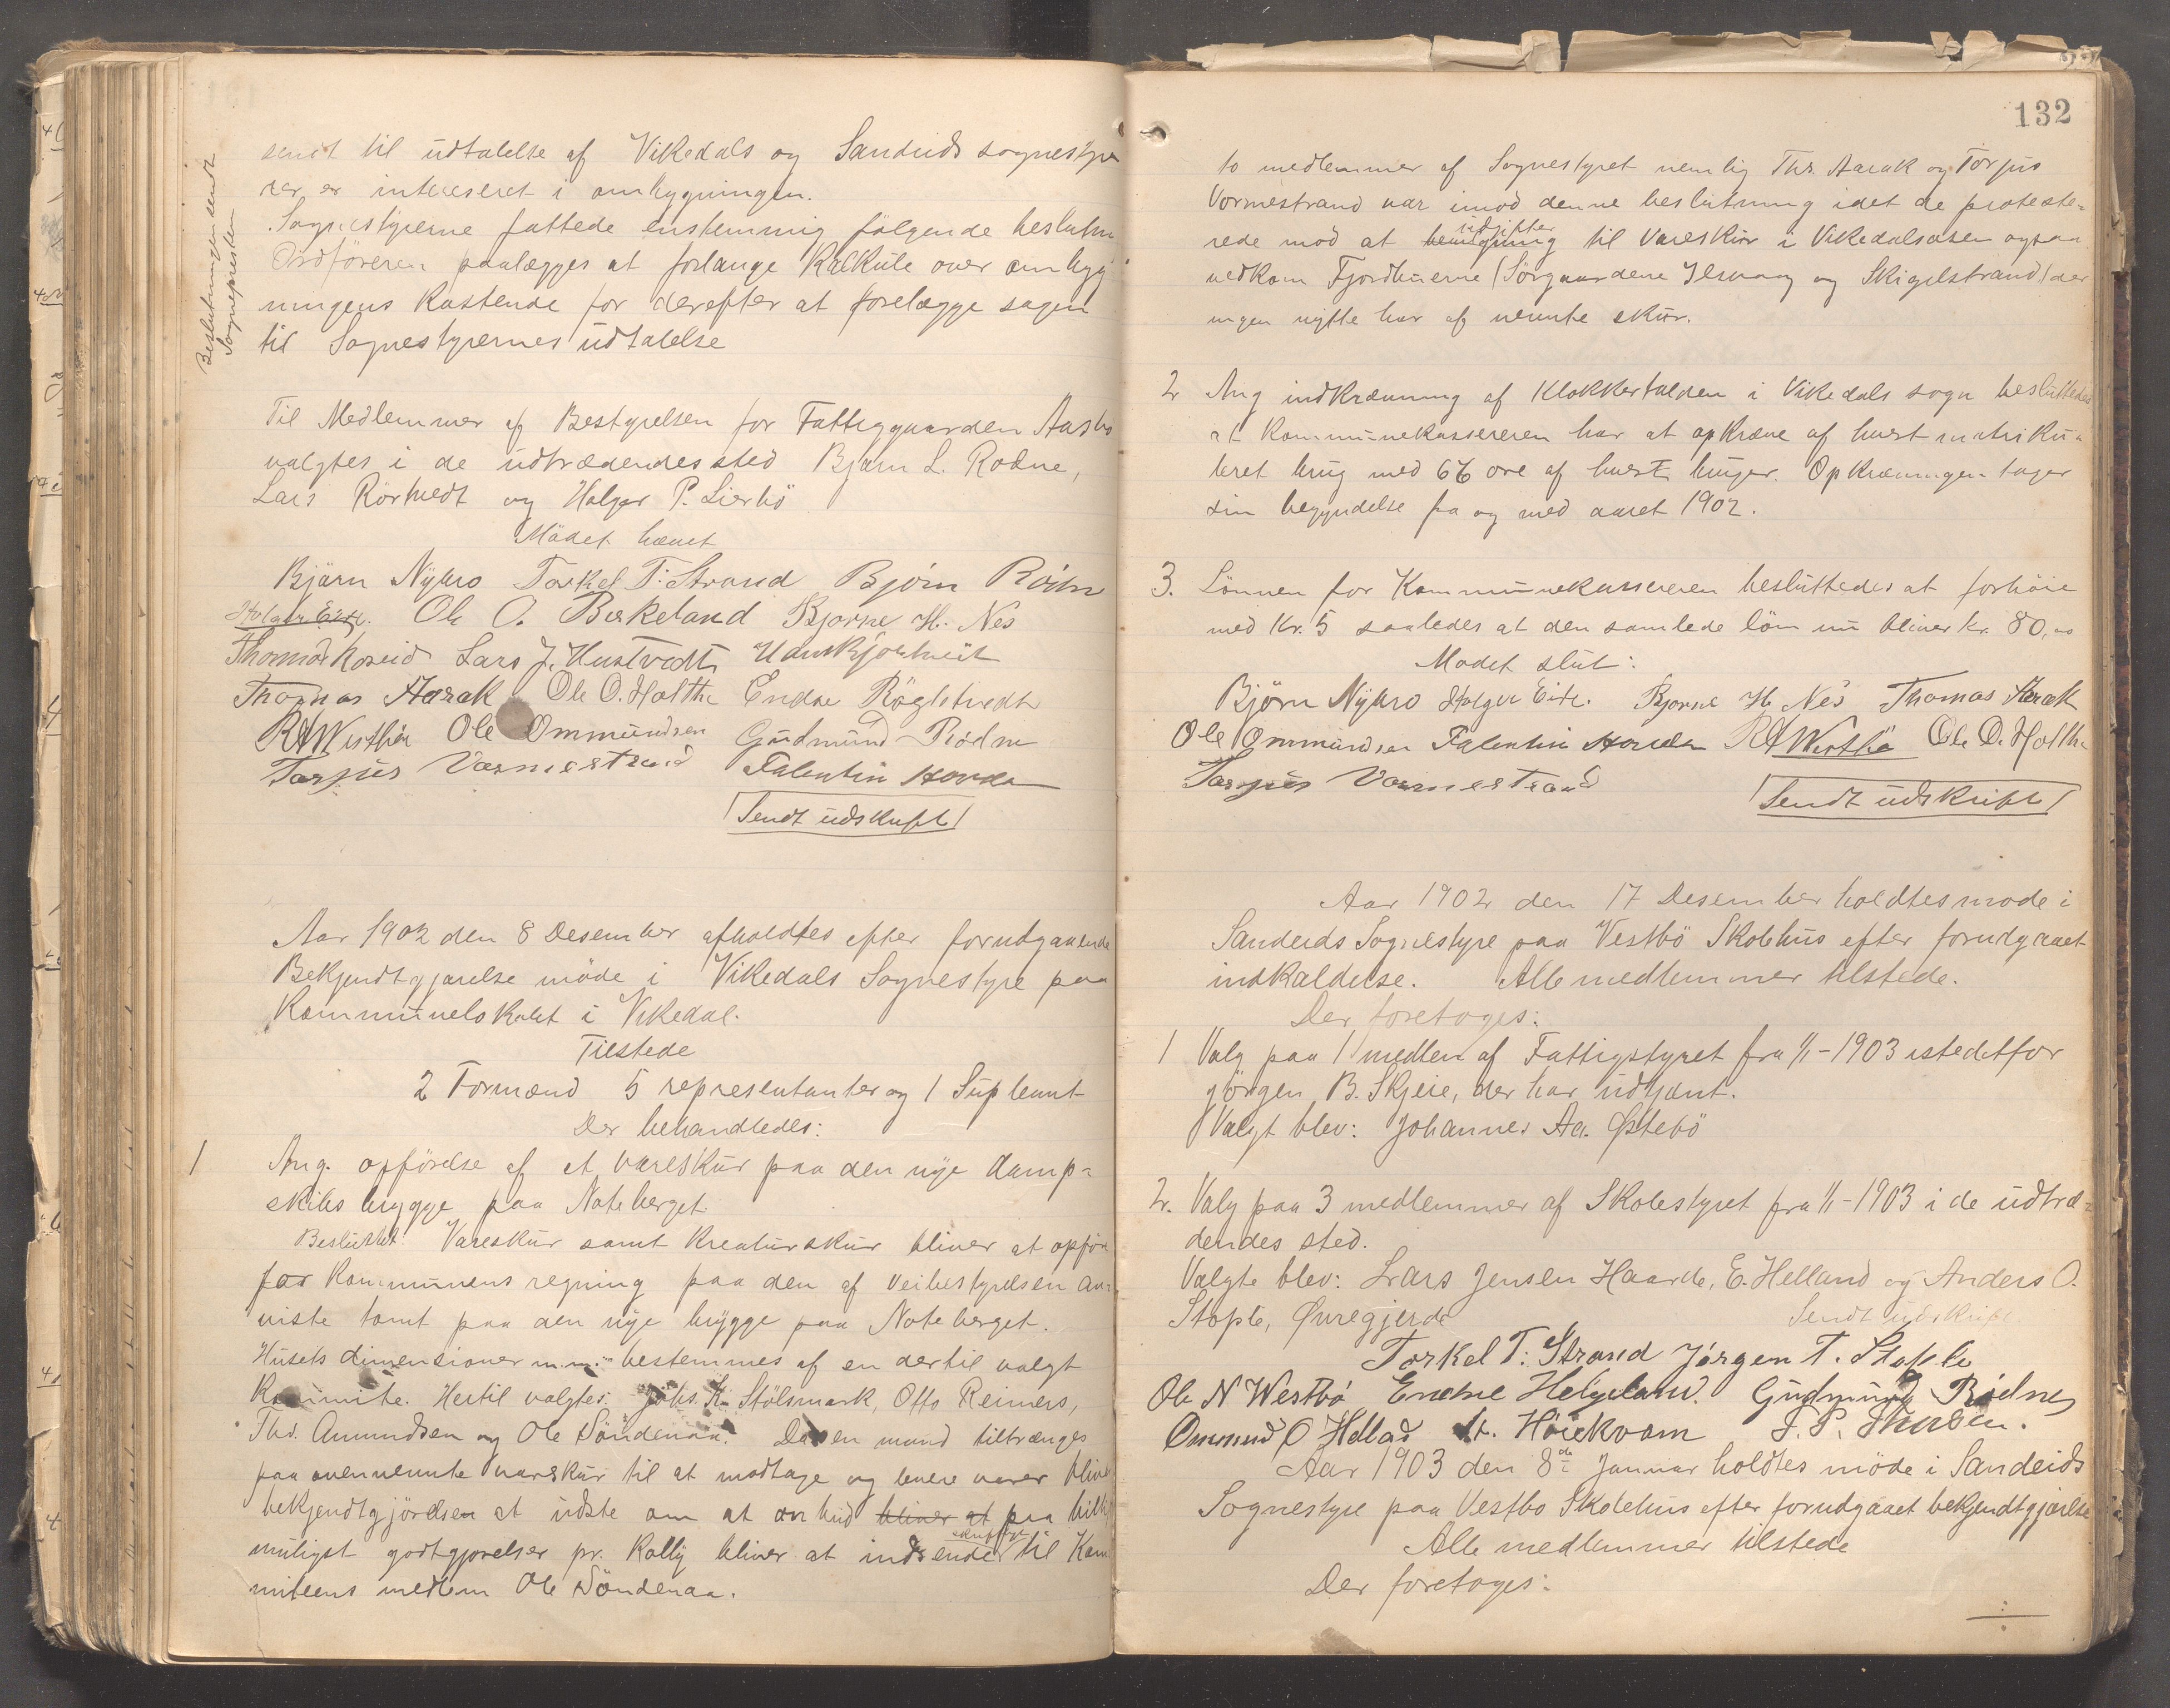 sendt til udtalelse af Vikedals og Sandeids sognestyre
der er interesseret i ombygningen.
Sognestyrerne fattede enstemmig følgende beslutn
Ordføreren paalægges at forlange Kalkule over ombyg
ningens Kostende for derefter at forelægge sagen
til Sognestyrernes udtalelse
Beslutningen sendt
Sognepresten
Til Medlemmer af Bestyrelsen for Fattiggaarden Aasbo
valgtes i de udtrædendes sted Bjørn L. Rødne,
Lars Rörtvedt og Holger P. Lierbö
Mödet hævet
Björn Nybro Torkel T. Strand Bjórn Rödne
Holger Eide. Ole O. Birkeland Bjorne H. Nes
Thomas Koreid Lars J. Hustvedt
Thomas Aarak Ole O. Holthe Endre Röglstvedt
RAWestbö Ole Ommundsen Gudmund Rödne
Torjus Vormestrand Falentin Hovda
Sendt udskrift
Aar 1902 den 8 Desember afholdtes efter forudgaaende
Bekjendtgjørelse möde i Vikedals Sognestyre paa
Kommunelokalet i Vikedal.
Tilstede
2 Formænd 5 representanter og 1 Supleant
Der behandledes:
1 Ang. opförelse af et vareskur paa den nye damp-
skibs brygge paa Noteberget.
Besluttet: Vareskur samt Kreaturskur bliver at opföre
for Kommunens regning paa den af veibestyrelsen an-
viste tomt paa den nye brygge paa Noteberget.
Husets dimensioner m.m. bestemmes af en dertil valgt
Komite. Hertil valgtes: Johs. Kr. Stölsmark, Otto Reimers,
Thd. Amundsen og Ole Söndenaa. Da en mand tiltrænges
paa ovennevnte vareskur til at modtage og levere varer bliver
bekjendtgjörelsen at udste om at en bud bliver at paa billigst
muligst godtgjørelser pr. Kolly bliver at indsender skriftligt til Kom
miteens medlem Ole Söndenaa.
132
to medlemmer af Sognestyret nemlig Ths. Aarak og Torjus
Vormestrand var imod denne beslutning idet de proteste-
rede mod at udgifter til Vareskur i Vikedalsosen ogsaa
vedkom Fjordbuerne (Sørgaardene Ilsvaag og Skigelstrand) der
ingen nytte har af nevnte skur.
2 Ang indkrævning af Klokkertolden i Vikedals sogn besluttedes
at Kommunekassereren har at opkræve af hvert matriku-
leret brug med 66 øre af hvert bruger. Opkrævningen tager
sin begyndelse fra og med aaret 1902.
3. Lönnen for Kommunekassereren besluttedes at forhöie
med Kr. 5 saaledes at den samlede lön nu bliver kr. 80,00
Modet slut:
Björn Nybro Holger Eide. Bjorne H. Nes Thomas Aarak
Ole Ommundsen Falentin Hovda RAWestbö Ole O. Holthe
Torjus Vormestrand
Sendt udskrift
Aar 1902 den 17 Desember holdtes mode i
Sandeids Sognestyre paa Vestbö Skolehus efter forudgaaet
indkaldelse. Alle medlemmer tilstede.
Der foretoges:
1 Valg paa 1 medlem af Fattigstyret fra 1/1-1903 istedetfor
Jörgen B. Skjeie, der har udtjent.
Valgt blev: Johannes Aa. Østebö
2. Valg paa 3 medlemmer af Skolestyret fra 1/1-1903 i de udtræ-
dendes sted.
Valgte blev: Lars Jensen Haarde, E. Helland og Anders O.
Stople, Øvregjerde
Sendt udskrift
Torkel T: Strand Jörgen T. Stople
Ole N Westbö Endre Helgeland. Gudmund Rödne
Ommund O Helland H. Höiekvam J. P. Thusen.
Aar 1903 den 8de Januar holdtes möde i Sandeids
Sognestyre paa Vestbo Skolehus efter forudgaaet bekjendtgjørelse
Alle medlemmer tilstede
Der foretoges: